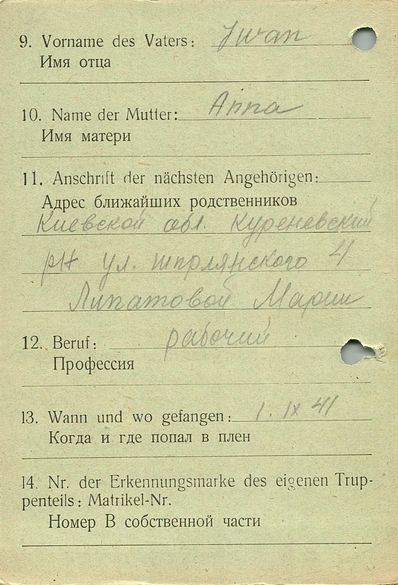 9. Vorname des Vaters: Iwan
Имя отца
10. Name der Mutter: Anna
Имя матери
11. Anschrift der nächsten Angehörigen:
Адрес ближайших родственников
Киевской обл. Куреневский
рн ул. 4
Липатовой Марии
12. Beruf: рабочий
Профессия
13. Wann und wo gefangen: 1. IX 41
Когда и где попал в плен
14. Nr. der Erkennungsmarke des eigenen Trup-
penteils: Matrikel-Nr.
Номер В собственной части